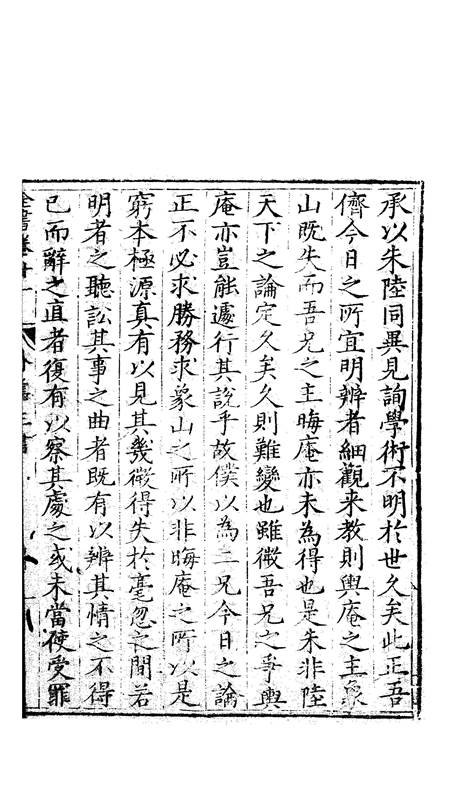 承以朱陸同異見詢學術不明於世久矣此正吾
儕今日之所宜明辨者細觀来教則輿庵之主象
山既失而吾兄之主晦庵亦未為得也是朱非陸
天下之論定久矣久則難變也雖微吾兄之爭輿
庵亦豈能遽行其說乎故僕以為二兄今日之論
正不必求勝務求象山之所以非晦庵之所以是
窮本極源真有以見其幾微得失於毫忽之間若
明者之聽訟其事之曲者既有以辨其情之不得
已而辭之直者復有以察其處之或未當使受罪
全書卷廿一